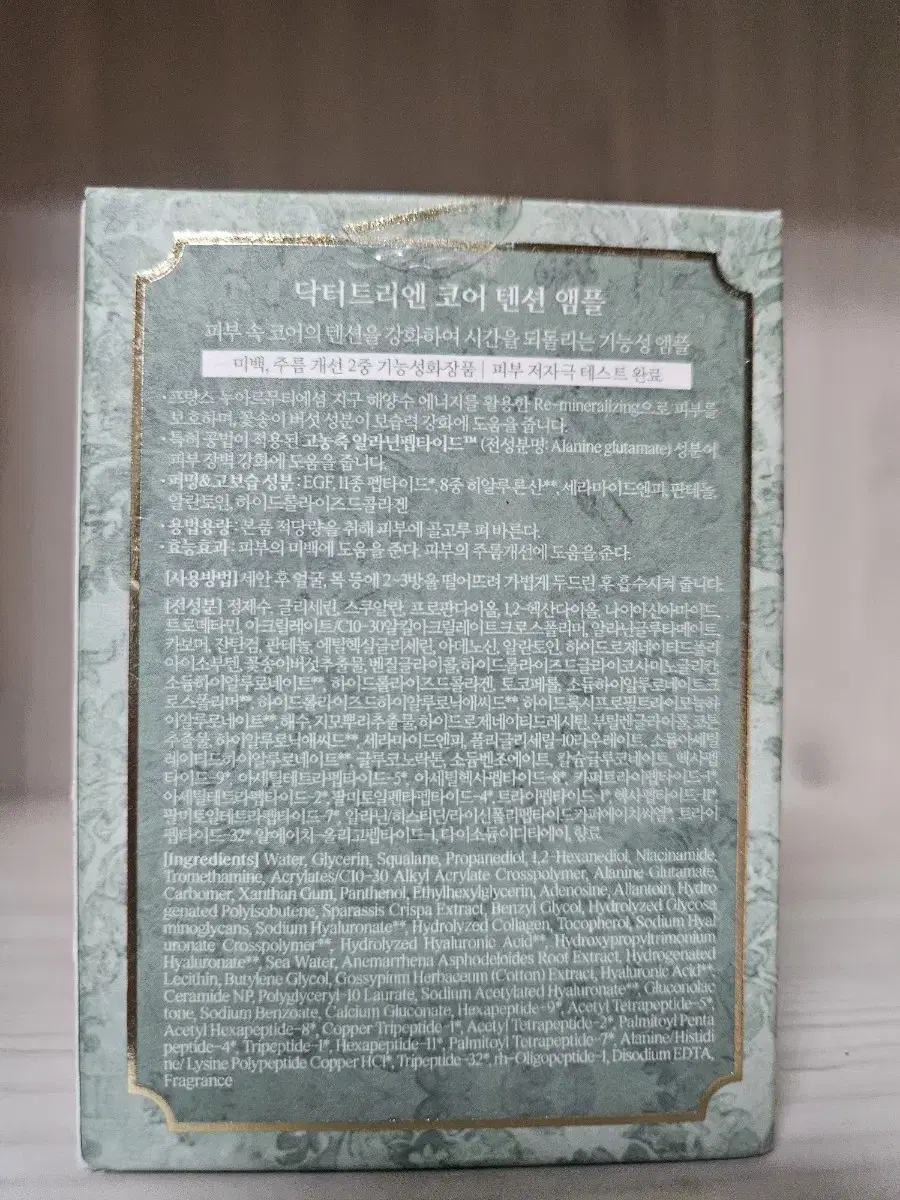 닥터트리엔 코어 텐션 앰플
피부 속 코어의 텐션을 강화하여 시간을 되돌리는 기능성 앰플
미백, 주름 개선 2중 기능성화장품 | 피부 저자극 테스트 완료
• 프랑스 누아르무티에섬 지구 해양수 에너지를 활용한 Re-mineralizing으로 피부를
보호하며, 꽃송이 버섯 성분이 보습력 강화에 도움을 줍니다.
• 특허 공법이 적용된 고농축 알라닌펩타이드™ (전성분명: Alanine glutamate) 성분이
피부 장벽 강화에 도움을 줍니다.
• 퍼밍&고보습 성분 : EGF, 11종 펩타이드*, 8중 히알루론산**, 세라마이드엔피, 판테놀,
알란토인, 하이드롤라이즈드콜라겐
• 용법용량 : 본품 적당량을 취해 피부에 골고루 펴 바른다.
• 효능효과 : 피부의 미백에 도움을 준다. 피부의 주름개선에 도움을 준다.
[사용방법] 세안 후 얼굴, 목 등에 2-3방울 떨어뜨려 가볍게 두드린 후 흡수시켜 줍니다.
[전성분] 정제수, 글리세린, 스쿠알란, 프로판다이올, 1,2-헥산다이올, 나이아신아마이드,
트로메타민, 아크릴레이트/C10-30알킬아크릴레이트크로스폴리머, 알라닌글루타메이트,
카보머, 잔탄검, 판테놀, 에틸헥실글리세린, 아데노신, 알란토인, 하이드로제네이티드폴리
아이소부텐, 꽃송이버섯추출물, 벤질글라이콜, 하이드롤라이즈드글라이코사미노글리칸,
소듐하이알루로네이트**, 하이드롤라이즈드콜라겐, 토코페롤, 소듐하이알루로네이트크
로스폴리머**, 하이드롤라이즈드하이알루로닉애씨드**, 하이드록시프로필트라이모늄하
이알루로네이트**, 해수, 지모뿌리추출물, 하이드로제네이티드레시틴, 부틸렌글라이콜, 코튼
추출물, 하이알루로닉애씨드**, 세라마이드엔피, 폴리글리세릴-10라우레이트, 소듐아세틸
헤이티드하이알루로네이트**, 글루코노락톤, 소듐벤조에이트, 칼슘글루코네이트, 헥사펩
타이드-9*, 아세틸테트라펩타이드-5*, 아세틸헥사펩타이드-8*, 카퍼트라이펩타이드-1*,
아세틸테트라펩타이드-2*, 팔미토일펜타펩타이드-4*, 트라이펩타이드-1*, 헥사펩타이드-11*,
팔미토일테트라펩타이드-7*, 알라닌/히스티딘/라이신폴리펩타이드카퍼에이치씨엘*, 트라이
펩타이드-32*, 알에이치-올리고펩타이드-1, 다이소듐이디티에이, 향료
[Ingredients] Water, Glycerin, Squalane, Propanediol, 1,2-Hexanediol, Niacinamide,
Tromethamine, Acrylates/C10-30 Alkyl Acrylate Crosspolymer, Alanine Glutamate,
Carbomer, Xanthan Gum, Panthenol, Ethylhexylglycerin, Adenosine, Allantoin, Hydro
genated Polyisobutene, Sparassis Crispa Extract, Benzyl Glycol, Hydrolyzed Glycosa
minoglycans, Sodium Hyaluronate**, Hydrolyzed Collagen, Tocopherol, Sodium Hyal
uronate Crosspolymer**, Hydrolyzed Hyaluronic Acid**, Hydroxypropyltrimonium
Hyaluronate**, Sea Water, Anemarrhena Asphodeloides Root Extract, Hydrogenated
Lecithin, Butylene Glycol, Gossypium Herbaceum (Cotton) Extract, Hyaluronic Acid**,
Ceramide NP, Polyglyceryl-10 Laurate, Sodium Acetylated Hyaluronate**, Gluconolac
tone, Sodium Benzoate, Calcium Gluconate, Hexapeptide-9*, Acetyl Tetrapeptide-5*,
Acetyl Hexapeptide-8*, Copper Tripeptide-1*, Acetyl Tetrapeptide-2*, Palmitoyl Penta
peptide-4*, Tripeptide-1*, Hexapeptide-11*, Palmitoyl Tetrapeptide-7*, Alanine/Histidi
ne/ Lysine Polypeptide Copper HCl*, Tripeptide-32*, rh-Oligopeptide-1, Disodium EDTA,
Fragrance